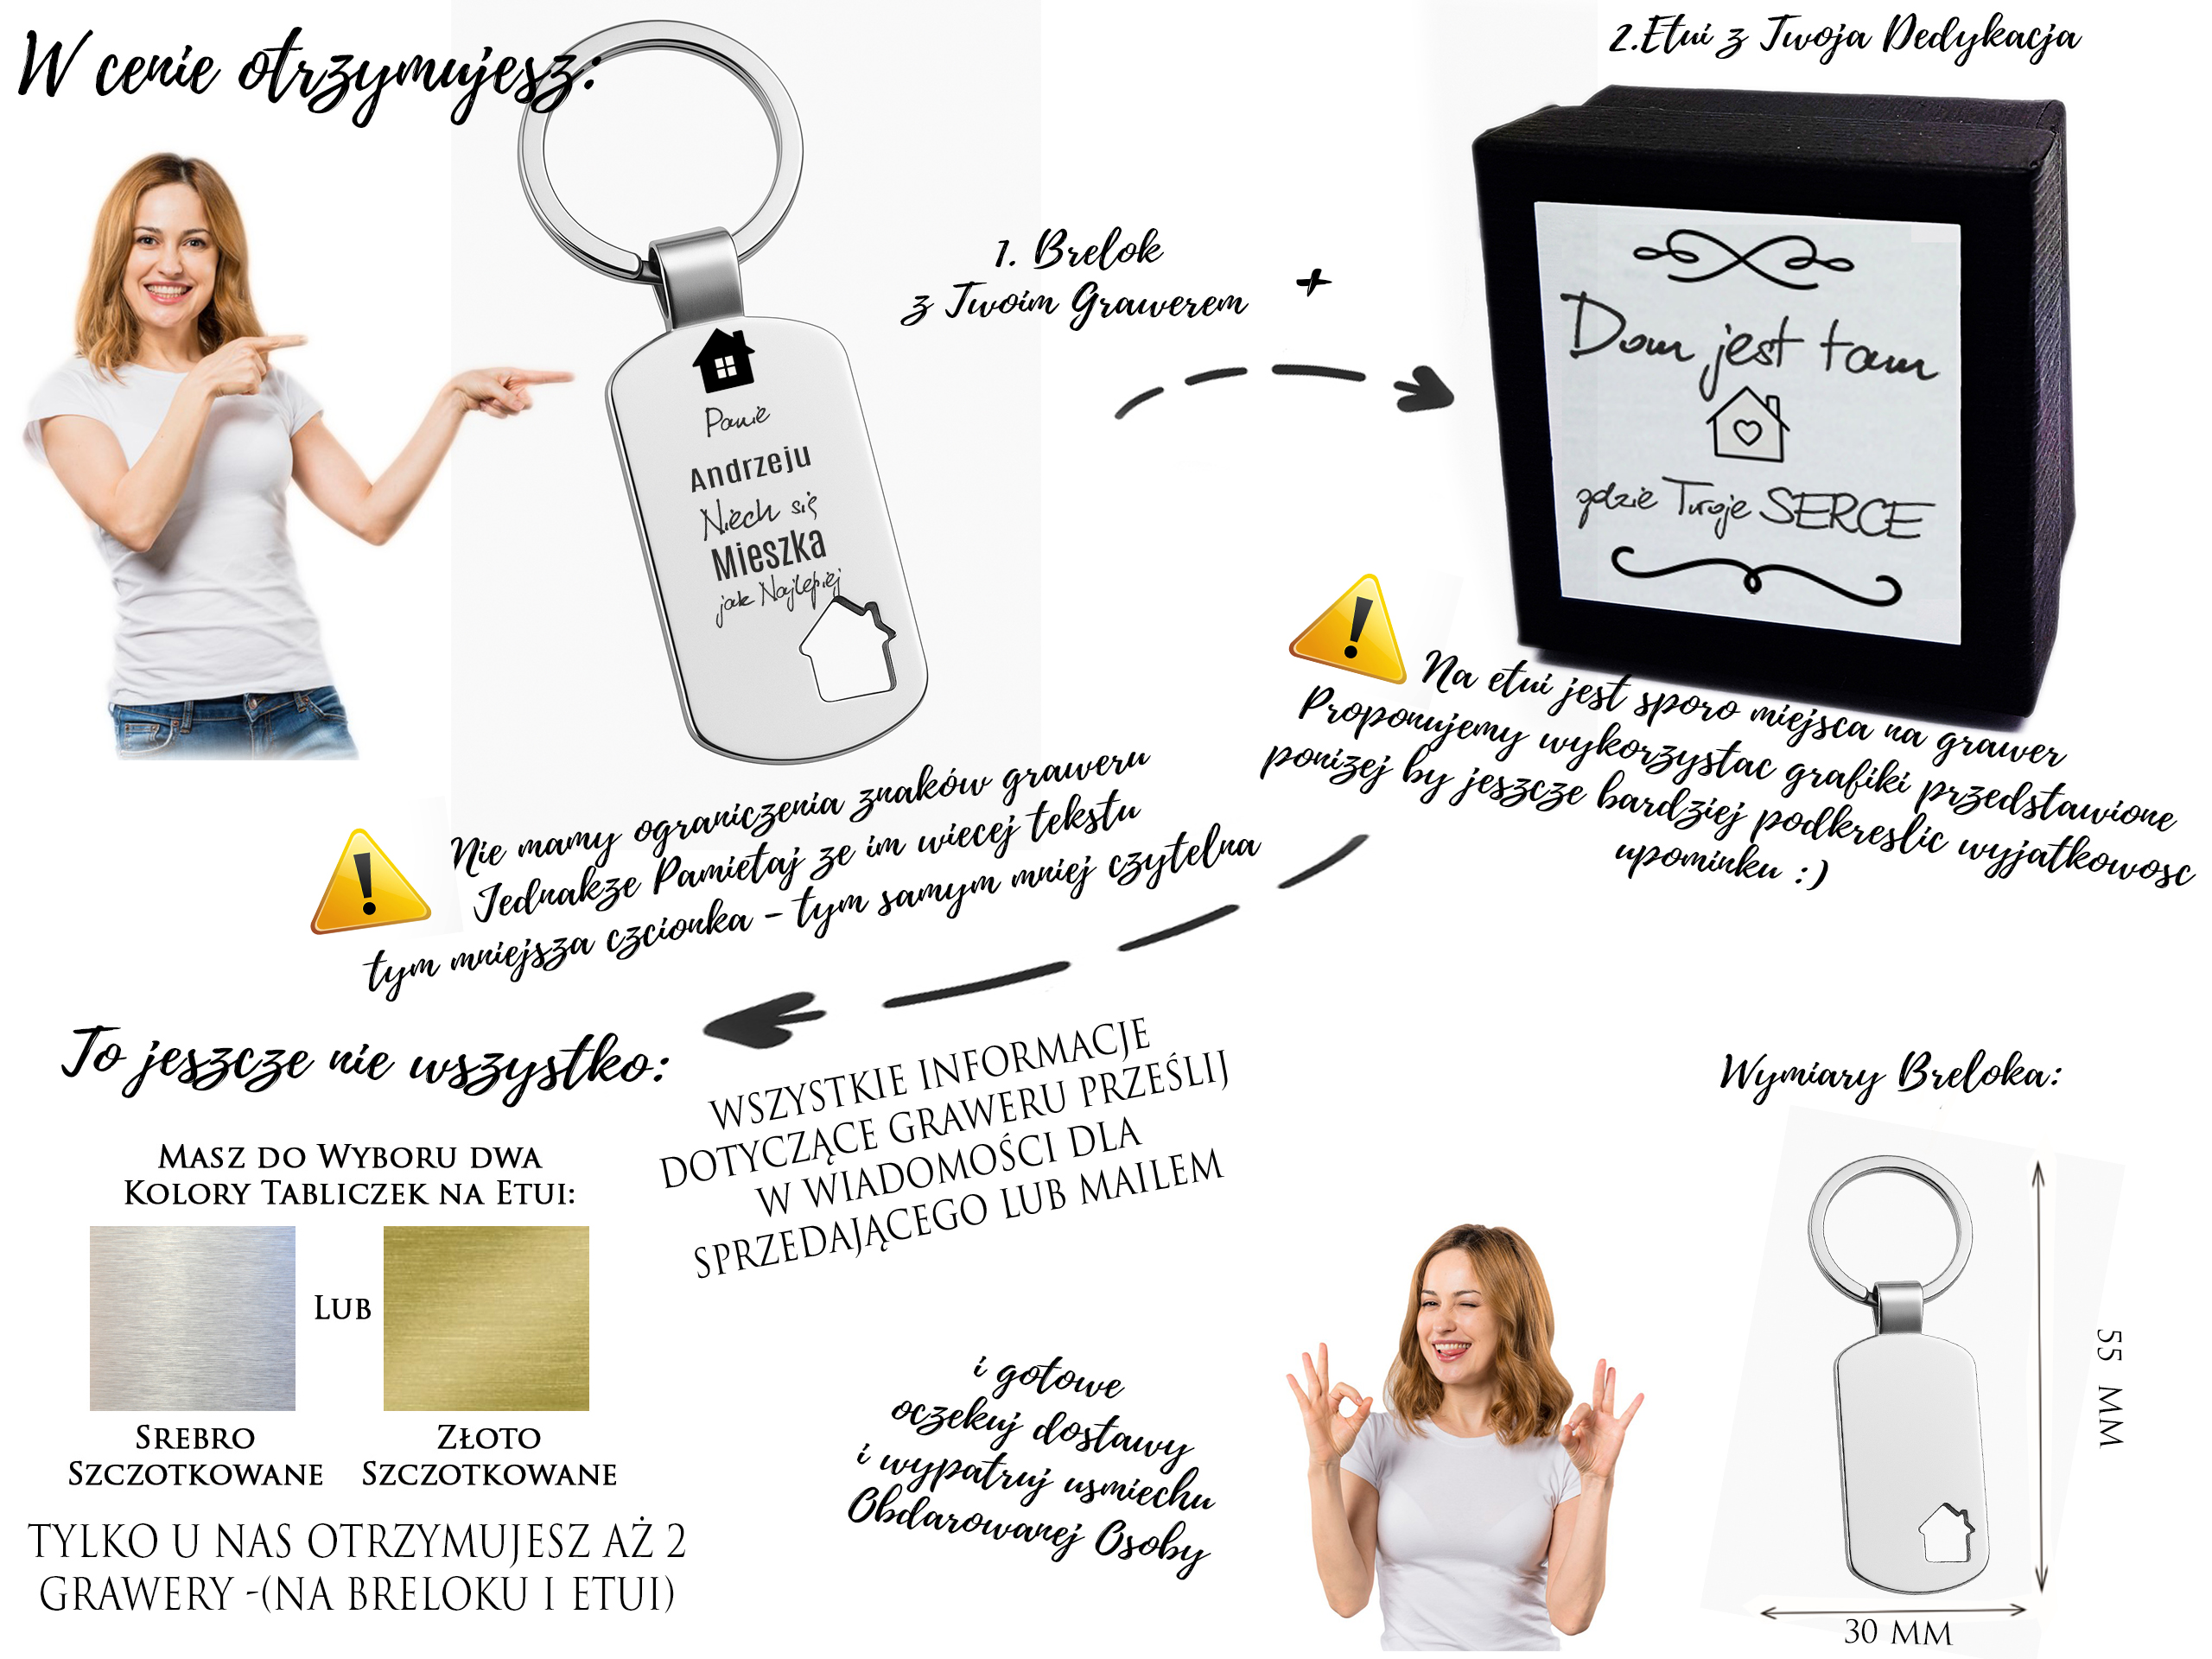 W cenie otrzymujesz:
2.Etui z Twoja Dedykacja
1. Brelok
z Twoim Grawerem
+
Panie
Andrzeju
Niech się
Mieszka
jak Najlepiej
Dom jest tam
gdzie Twoje SERCE
Na etui jest sporo miejsca na grawer
Proponujemy wykorzystac grafiki przedstawione
ponizej by jeszcze bardziej podkreslic wyjatkowosc
upominku :)
Nie mamy ograniczenia znaków graweru
Jednakze Pamietaj ze im wiecej tekstu
tym mniejsza czcionka - tym samym mniej czytelna
To jeszcze nie wszystko:
WSZYSTKIE INFORMACJE
DOTYCZĄCE GRAWERU PRZEŚLIJ
W WIADOMOŚCI DLA
SPRZEDAJĄCEGO LUB MAILEM
Masz do Wyboru dwa
Kolory Tabliczek na Etui:
Lub
Srebro
Szczotkowane
Złoto
Szczotkowane
TYLKO U NAS OTRZYMUJESZ AŻ 2
GRAWERY -(NA BRELOKU I ETUI)
i gotowe
oczekuj dostawy
i wypatruj usmiechu
Obdarowanej Osoby
Wymiary Breloka:
55 MM
30 MM